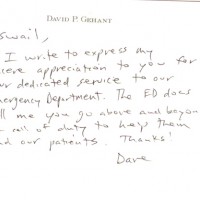 DAVID P. GEHANT
swail,
I write to express my
cere appreciation to you for
ur dedicated service to our
ergency Department. The ED docs
ll me you go above and beyon
call of duty to help them
nd our patients. Thanks!
Dave